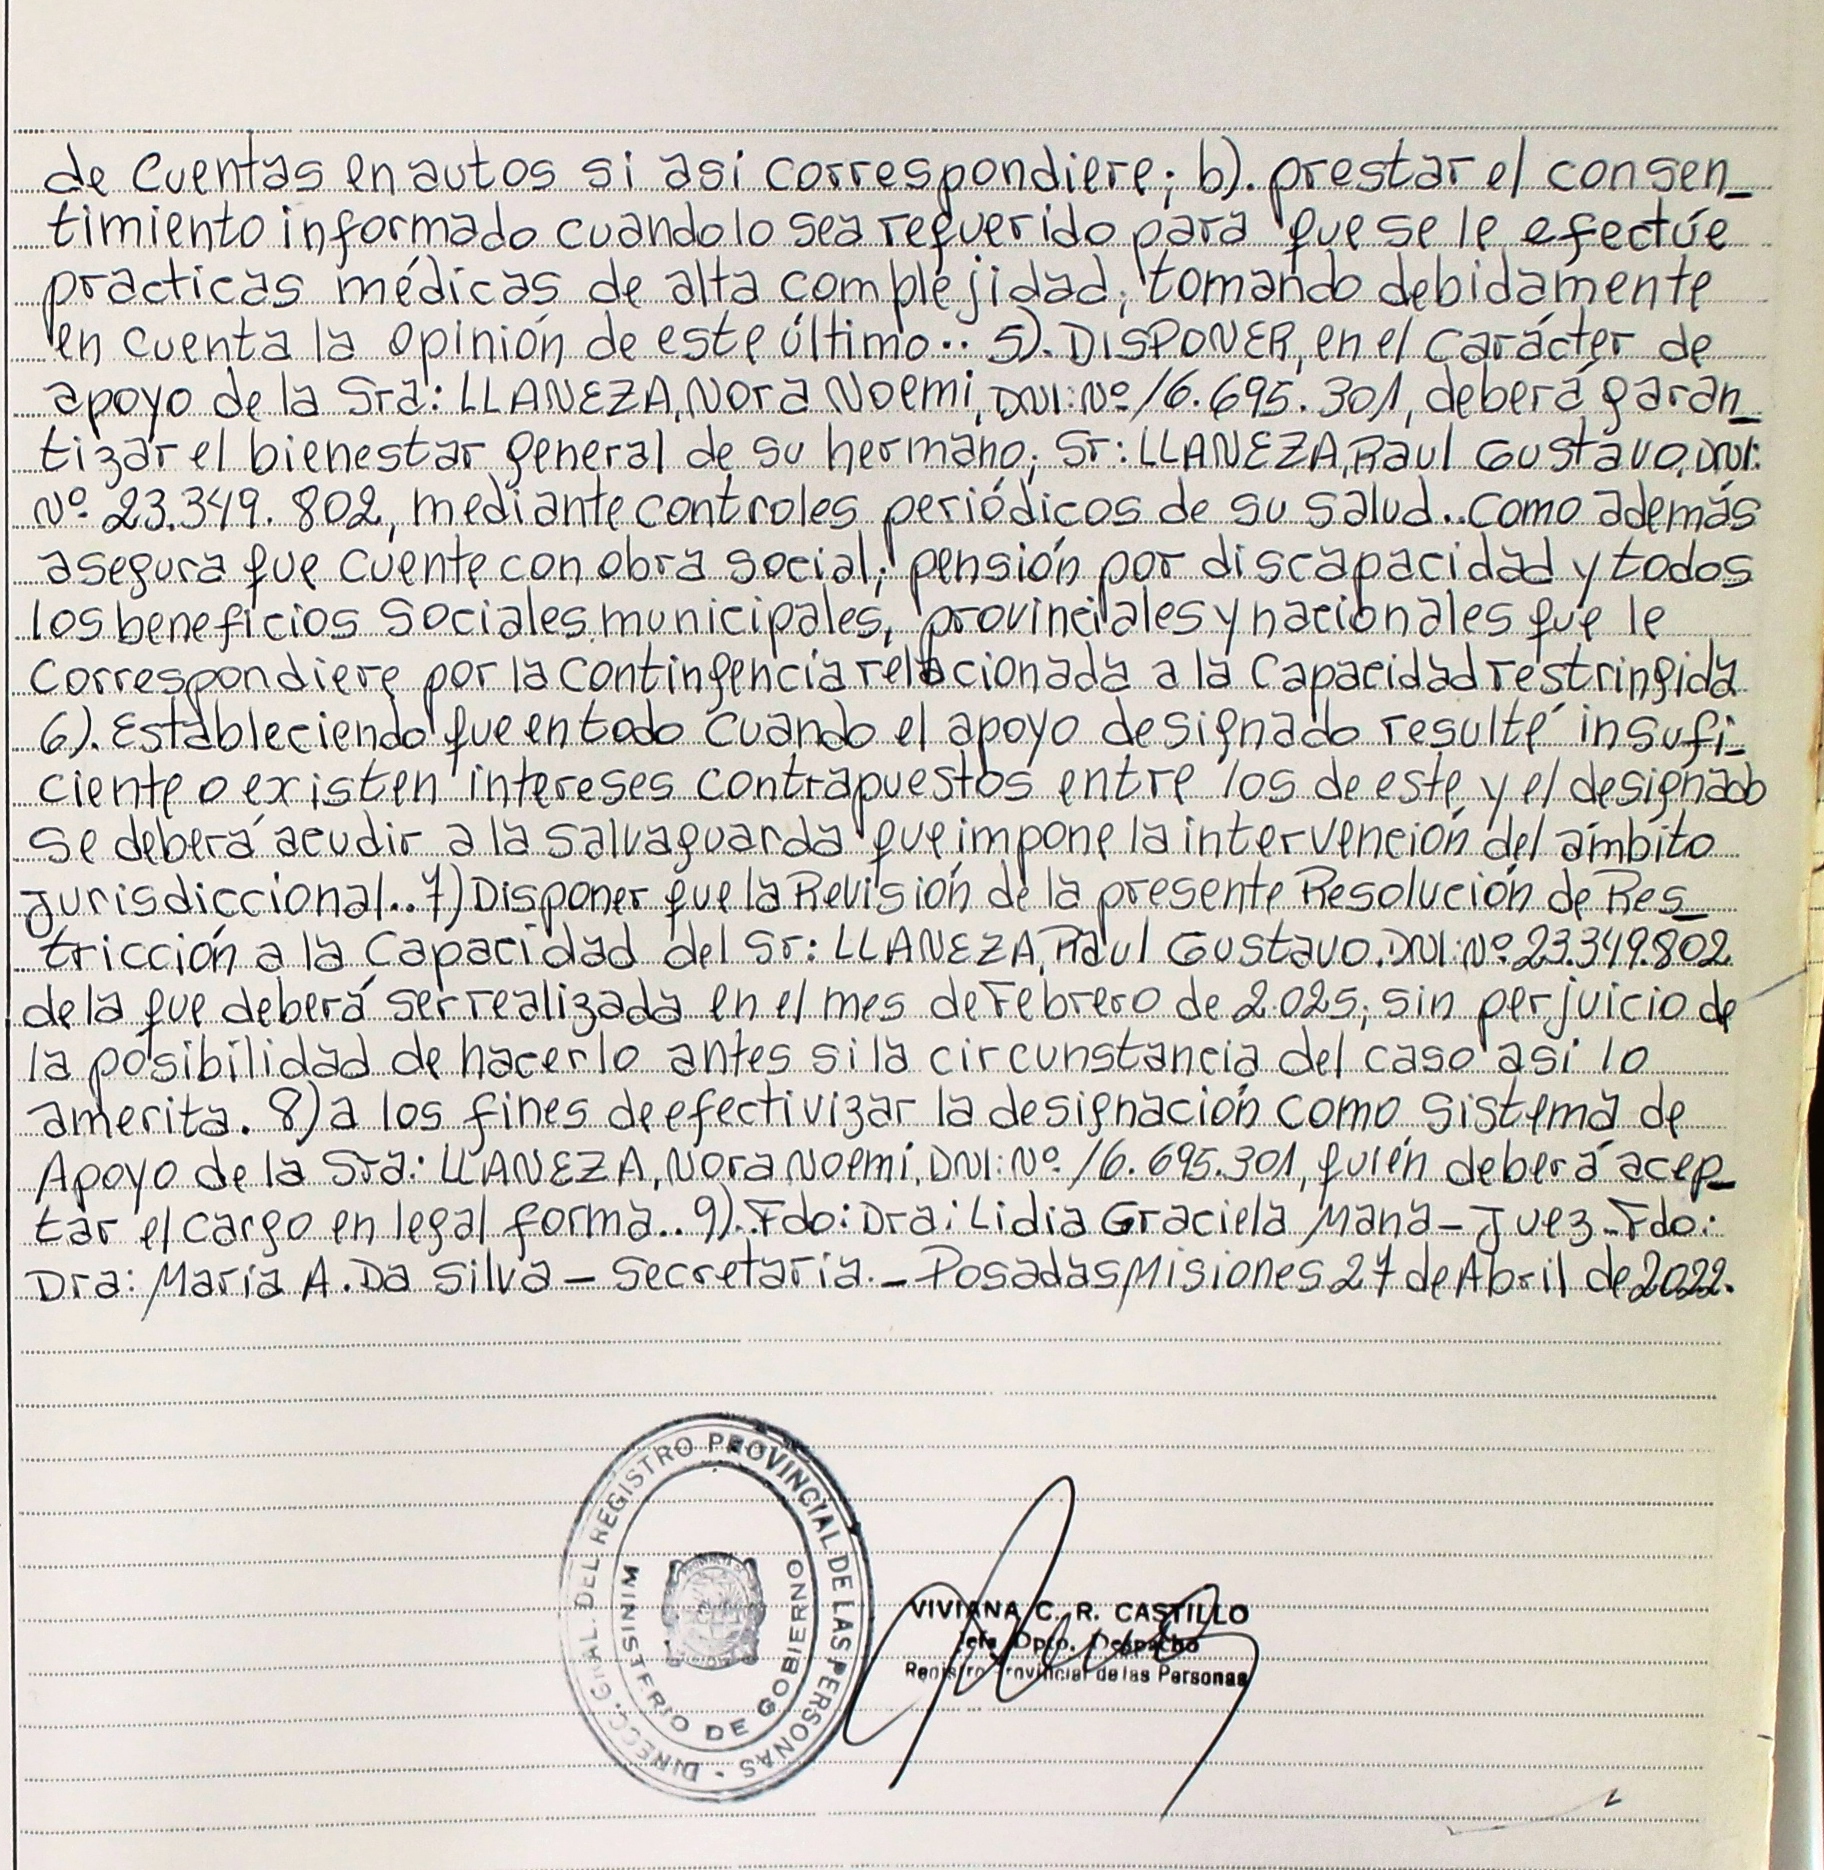 de cuentas en autos si asi correspondiere; b). prestar el consen_
timiento informado cuando lo sea requerido para que se le efectúe
practicas médicas de alta complejidad, tomando debidamente
en cuenta la opinión de este último.. 5). DISPONER, en el carácter de
apoyo de la Sra: LLANEZA, Nora Noemi, DNI: Nº 16.695.301, deberá garan_
tizar el bienestar general de su hermano; Sr: LLANEZA, Raul Gustavo, DNI:
Nº 23.349.802, mediante controles periódicos de su salud.. Como además
asegura que cuente con obra social; pensión por discapacidad y todos
los beneficios sociales municipales, provinciales y nacionales que le
correspondiere por la contingencia relacionada a la Capacidad restringida
6). Estableciendo que en todo cuando el apoyo designado resulté insufi_
ciente o existen intereses contrapuestos entre los de este y el designado
se deberá acudir a la salvaguarda que impone la intervención del ámbito
Jurisdiccional.. 7) Disponer que la Revisión de la presente Resolución de Res_
tricción a la Capacidad del Sr: LLANEZA, Raul Gustavo. DNI: Nº 23.349.802
de la que deberá ser realizada en el mes de Febrero de 2.025; sin perjuicio de
la posibilidad de hacerlo antes si la circunstancia del caso asi lo
amerita. 8) a los fines de efectivizar la designación como sistema de
Apoyo de la Sra: LLANEZA, Nora Noemi, DNI: Nº 16.695.301, quién deberá acep_
tar el cargo en legal forma.. 9). Fdo: Dra: Lidia Graciela Mana - Juez. Fdo:
Dra: Maria A. Da Silva - Secretaria. - Posadas Misiones 27 de Abril de 2022.
DIRECC. GRAL. DEL REGISTRO PROVINCIAL DE LAS PERSONAS -
MINISTERIO DE GOBIERNO
VIVIANA C. R. CASTILLO
Jefa Dpto. Despacho
Registro Provincial de las Personas